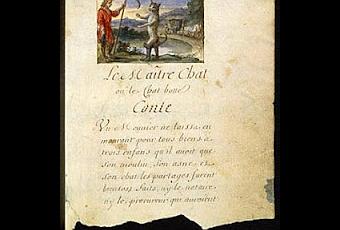 Le Maître Chat
ou le Chat botté
Conte
Un Meunier ne laissa en
mourant pour tous biens à
trois enfans qu'il avoit que
son moulin, son asne et
son chat les partages furent
bientost faits, ny le notaire
ny le procureur qui auroient